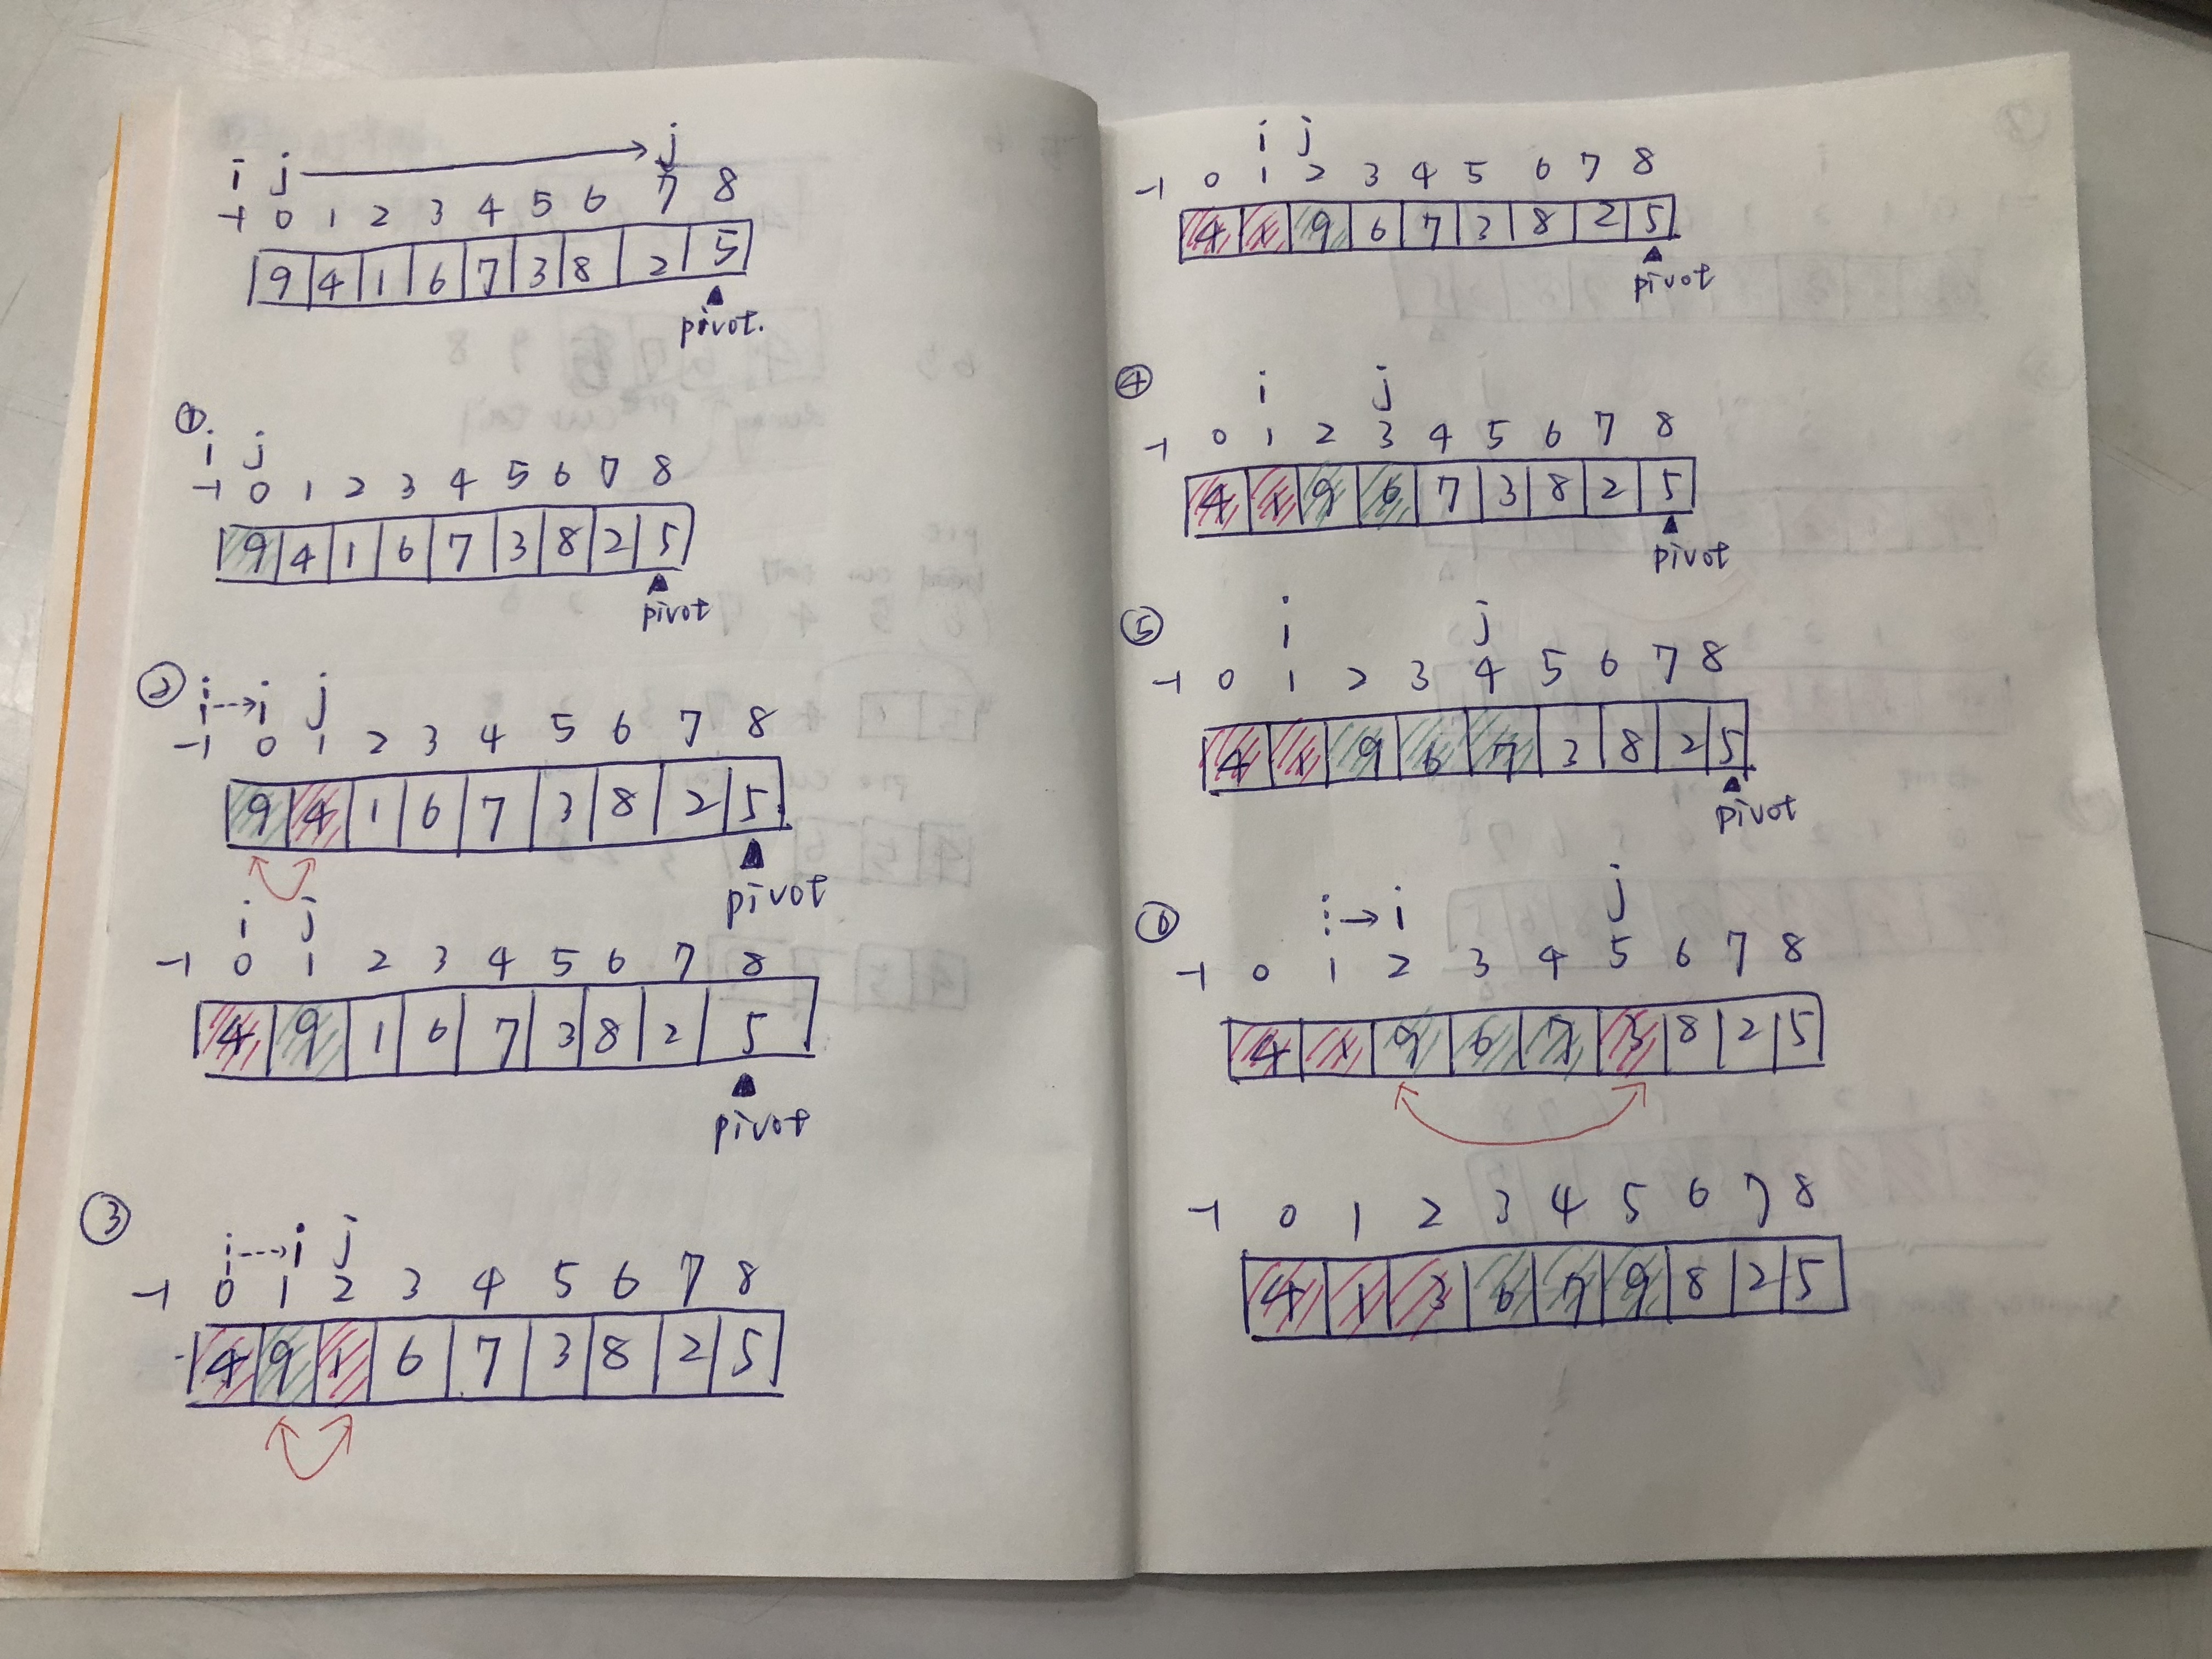 i j j
-1 0 1 2 3 4 5 6 7 8
9 4 1 6 7 3 8 2 5
pivot.
①
i j
-1 0 1 2 3 4 5 6 7 8
9 4 1 6 7 3 8 2 5
pivot
② i → i j
-1 0 1 2 3 4 5 6 7 8
9 4 1 6 7 3 8 2 5
pivot
i j
-1 0 1 2 3 4 5 6 7 8
4 9 1 6 7 3 8 2 5
pivot
③
i → i j
-1 0 1 2 3 4 5 6 7 8
4 9 1 6 7 3 8 2 5
i j
-1 0 1 2 3 4 5 6 7 8
4 1 9 6 7 3 8 2 5
pivot
④ i j
-1 0 1 2 3 4 5 6 7 8
4 1 9 6 7 3 8 2 5
pivot
⑤ i j
-1 0 1 2 3 4 5 6 7 8
4 1 9 6 7 3 8 2 5
pivot
⑥ i → i j
-1 0 1 2 3 4 5 6 7 8
4 1 9 6 7 3 8 2 5
-1 0 1 2 3 4 5 6 7 8
4 1 3 6 7 9 8 2 5